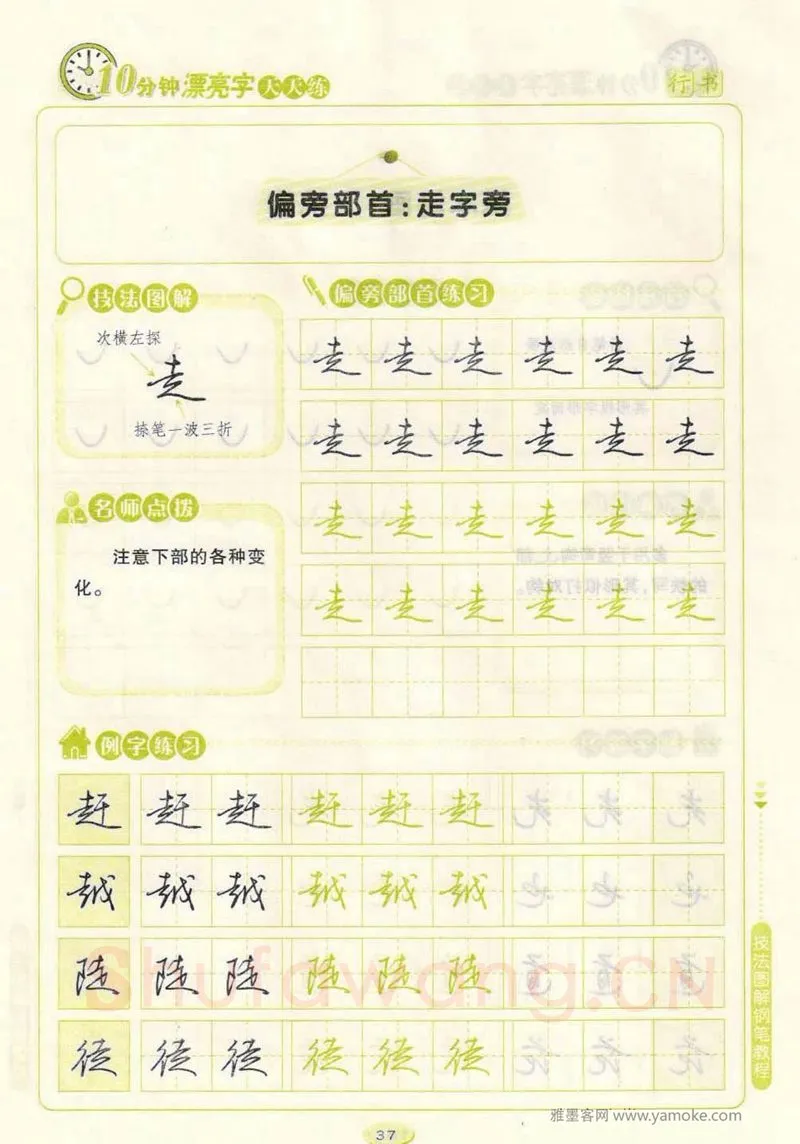 10分钟漂亮字天天练
行书
偏旁部首:走字旁
技法图解
次横左探
走
捺笔一波三折
名师点拨
注意下部的各种变
化。
偏旁部首练习
走 走 走 走 走 走
走 走 走 走 走 走
走 走 走 走 走 走
走 走 走 走 走 走
例字练习
赶 赶 赶 赶 赶 赶
越 越 越 越 越 越
陡 陡 陡 陡 陡 陡
徒 徒 徒 徒 徒 徒
技法图解钢笔教程
Shufawang.CN
雅墨客网 www.yamoke.com
37